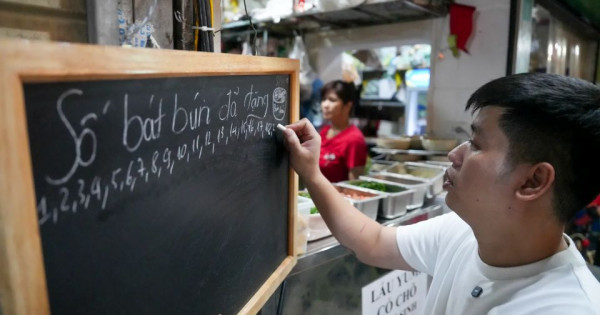 Số bát bún đã tặng
1, 2, 3, 4, 5, 6, 7, 8, 9, 10, 11, 12, 13, 14, 15, 16, 17, 18,
LẨU
CÓ CHỖ
SINH